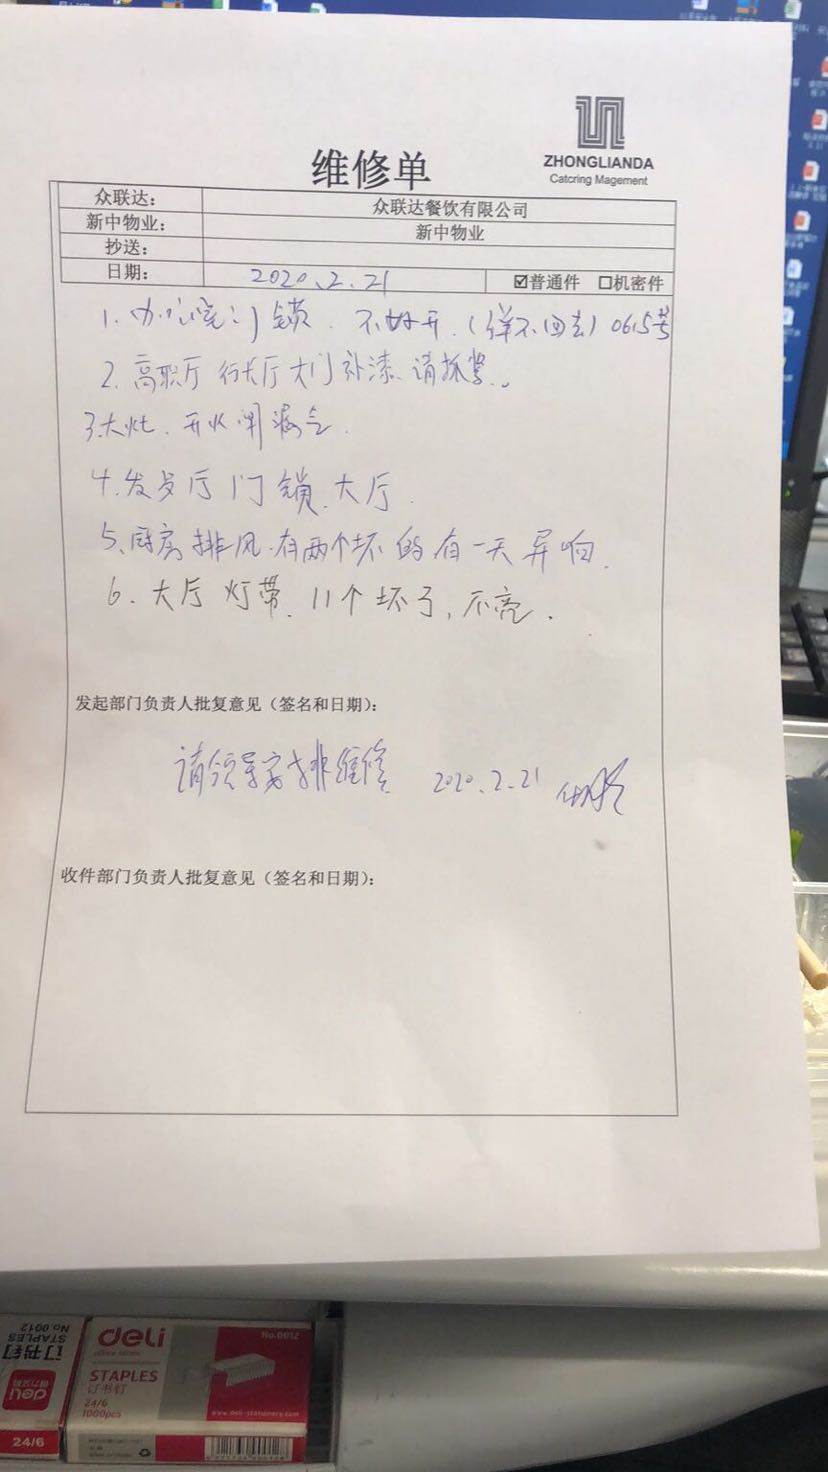 ZHONGLIANDA
Catcring Magement
维修单
众联达: 众联达餐饮有限公司
新中物业: 新中物业
抄送:
日期: 2020.2.21 ☑普通件 口机密件
1. 办公室门锁. 不好开.(弹不回去) 0615号
2. 高职厅 行长厅 大门补漆. 请抓紧.
3.大灶. 开水闸漏气.
4.发身厅门锁.大厅.
5.厨房排风.有两个坏的有一天异响.
6. 大厅灯带.11个坏了,不亮.
发起部门负责人批复意见(签名和日期):
请领导安排维修 2020.2.21
收件部门负责人批复意见(签名和日期):
deli
No.0012
STAPLES
订书钉
24/6
1000pcs
www.deli-stationery.com
No.0012
STAPLES
订书钉
deli
24/6